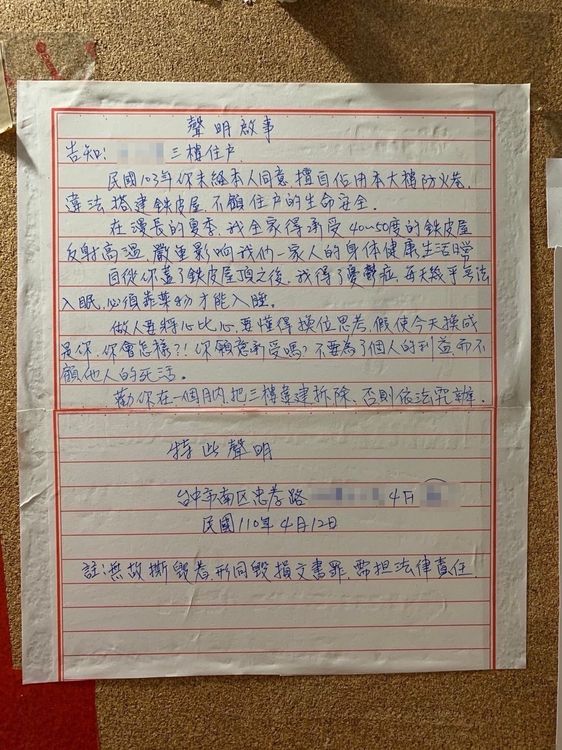 聲明啟事
告知: 三樓住戶.
民國103年你未經本人同意,擅自佔用本大樓防火巷,
違法搭建鐵皮屋,不顧住戶的生命安全.
在漫長的夏季,我全家得承受40~50度的鐵皮屋
反射高溫,嚴重影響我們一家人的身体健康,生活日常
自從你蓋了鐵皮屋頂之後,我得了憂鬱症,每天幾乎無法
入眠,必須靠藥物才能入睡.
做人要將心比心,要懂得換位思考,假使今天換成
是你,你會怎樣?!你願意承受嗎?不要為了個人的利益,而不
顧他人的死活.
勸你在一個月內,把三樓違建拆除、否則依法究辦.
特此聲明
台中市南区忠孝路 4F
民國110年4月12日
註:無故撕毀者形同毀損文書罪,需担法律責任.